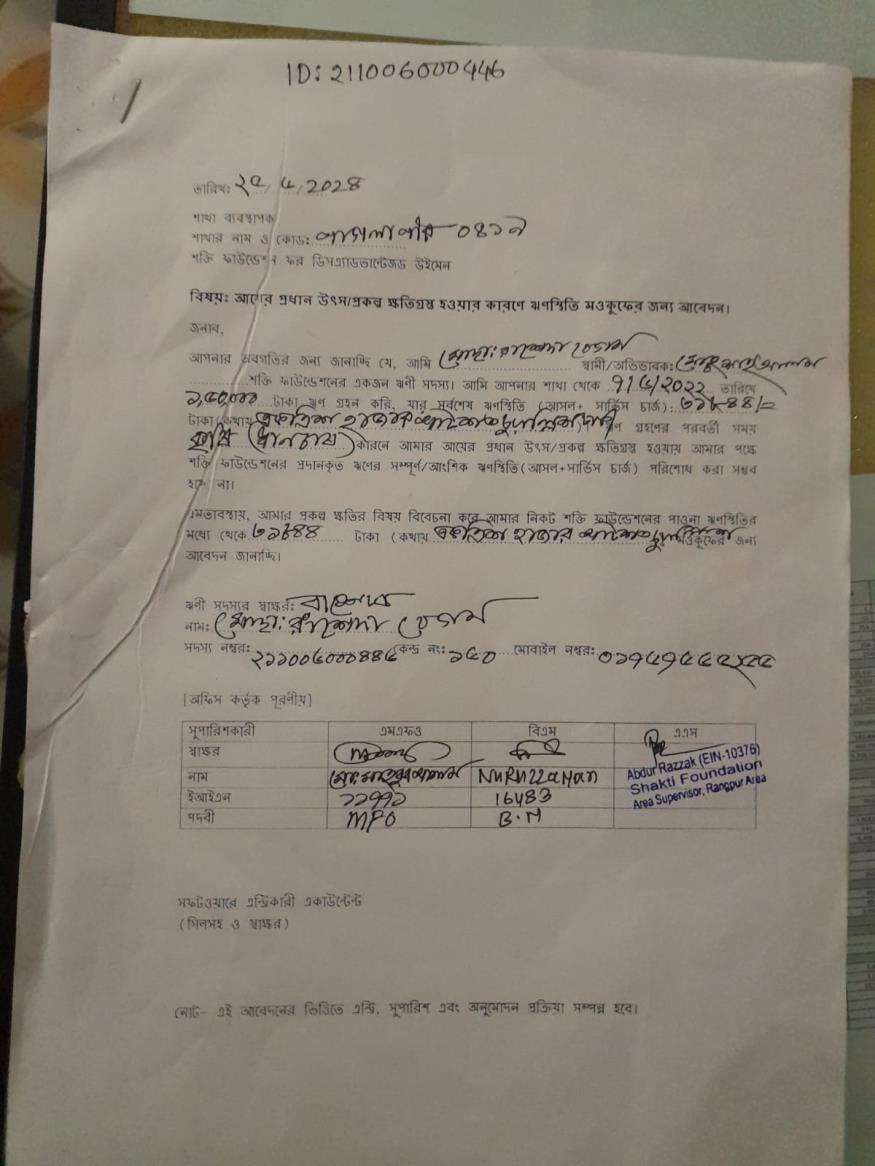 ID: 211006000446
তারিখ: ২৫/৬/2024
শাখা ব্যবস্থাপক
শাখার নাম ও কোড: পাগলাপীর-০৪১৭
শক্তি ফাউন্ডেশন ফর ডিসএ্যাডভান্টেজড উইমেন
বিষয়: আয়ের প্রধান উৎস/প্রকল্প ক্ষতিগ্রস্থ হওয়ার কারণে ঋণস্থিতি মওকুফের জন্য আবেদন।
জনাব,
আপনার অবগতির জন্য জানাচ্ছি যে, আমি মোছা: রাশেদা বেগম স্বামী/অভিভাবক:
শক্তি ফাউন্ডেশনের একজন ঋণী সদস্য। আমি আপনার শাখা থেকে ৭/৬/২০২২ তারিখে
টাকা ঋণ গ্রহন করি, যার সর্বশেষ ঋণস্থিতি (আসল+ সার্ভিস চার্জ): ৩১৮৪৪/=
টাকা (কথায় একত্রিশ হাজার আটশত চুয়াল্লিশ ঋণ গ্রহণের পরবর্তী সময়
কৃষি (ধান চাষ) কারনে আমার আয়ের প্রধান উৎস/প্রকল্প ক্ষতিগ্রস্থ হওয়ায় আমার পক্ষে
শক্তি ফাউন্ডেশনের প্রদানকৃত ঋণের সম্পূর্ণ/আংশিক ঋণস্থিতি(আসল+সার্ভিস চার্জ) পরিশোধ করা সম্ভব
হচ্ছে না।
এমতাবস্থায়, আমার প্রকল্প ক্ষতির বিষয় বিবেচনা করে আমার নিকট শক্তি ফাউন্ডেশনের পাওনা ঋণস্থিতির
মধ্যে থেকে ৩১৮৪৪ টাকা (কথায় একত্রিশ হাজার আটশত চুয়াল্লিশ মওকুফের জন্য
আবেদন জানাচ্ছি।
ঋণী সদস্যর স্বাক্ষর: রাশেদা
নাম: মোছা: রাশেদা বেগম
সদস্য নম্বর: ২১১০০৬০০০৪৪৬ কেন্দ্র নং: ১৫০ মোবাইল নম্বর:
[অফিস কর্তৃক পূরণীয়]
সুপারিশকারী এমএফও বিএম এএস
স্বাক্ষর
নাম NuRuzzaMan
ইআইএন ১১৭৭১ 16483
পদবী MFO B.M
Abdur Razzak (EIN-10376)
Shakti Foundation
Area Supervisor, Rangpur Area
সফটওয়ারে এন্ট্রিকারী একাউন্টেন্ট
(সিলসহ ও স্বাক্ষর)
নোট- এই আবেদনের ভিত্তিতে এন্ট্রি, সুপারিশ এবং অনুমোদন প্রক্রিয়া সম্পন্ন হবে।